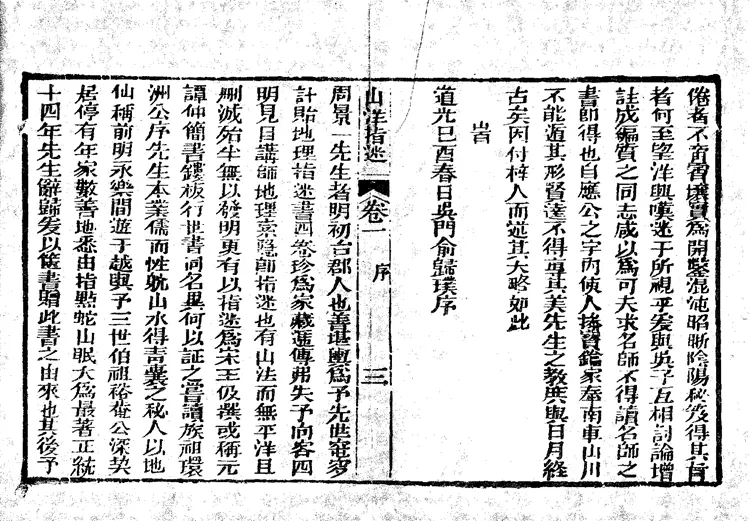 倦者不啻霄壤實為開鑿混沌昭晰陰陽秘笈得其旨
者何至望洋興嘆迷于所視乎爰與吳子互相討論增
註成編質之同志咸以為可夫求名師不得讀名師之
書師得也自應公之宇內使人寶鑑家奉南車山川
不能遁其形賢達不得專其美先生之教與日月經
古矣因付梓人而道其大略如此
道光己酉春日吳門俞歸璞序
山洋指迷 卷一 序 三
周景一先生者明初台郡人也善堪輿為予先世窀穸
計貽地理指迷書四卷珍為家藏遞傳弗失予向客四
明見目講師地理索隱卽指迷也有山法而無平洋且
刪減殆半無以發明更有以指迷為宋王伋撰或稱元
譚仲簡書鐫板行世書同名異何以証之嘗讀族祖環
洲公序先生本業儒而性躭山水得青囊之秘人以地
仙稱前明永樂間遊于越與予三世伯祖裕菴公深契
居停有年家數善地悉由指點蛇山眠犬為最著正統
十四年先生辭歸爰以書贈此書之由來也其後予